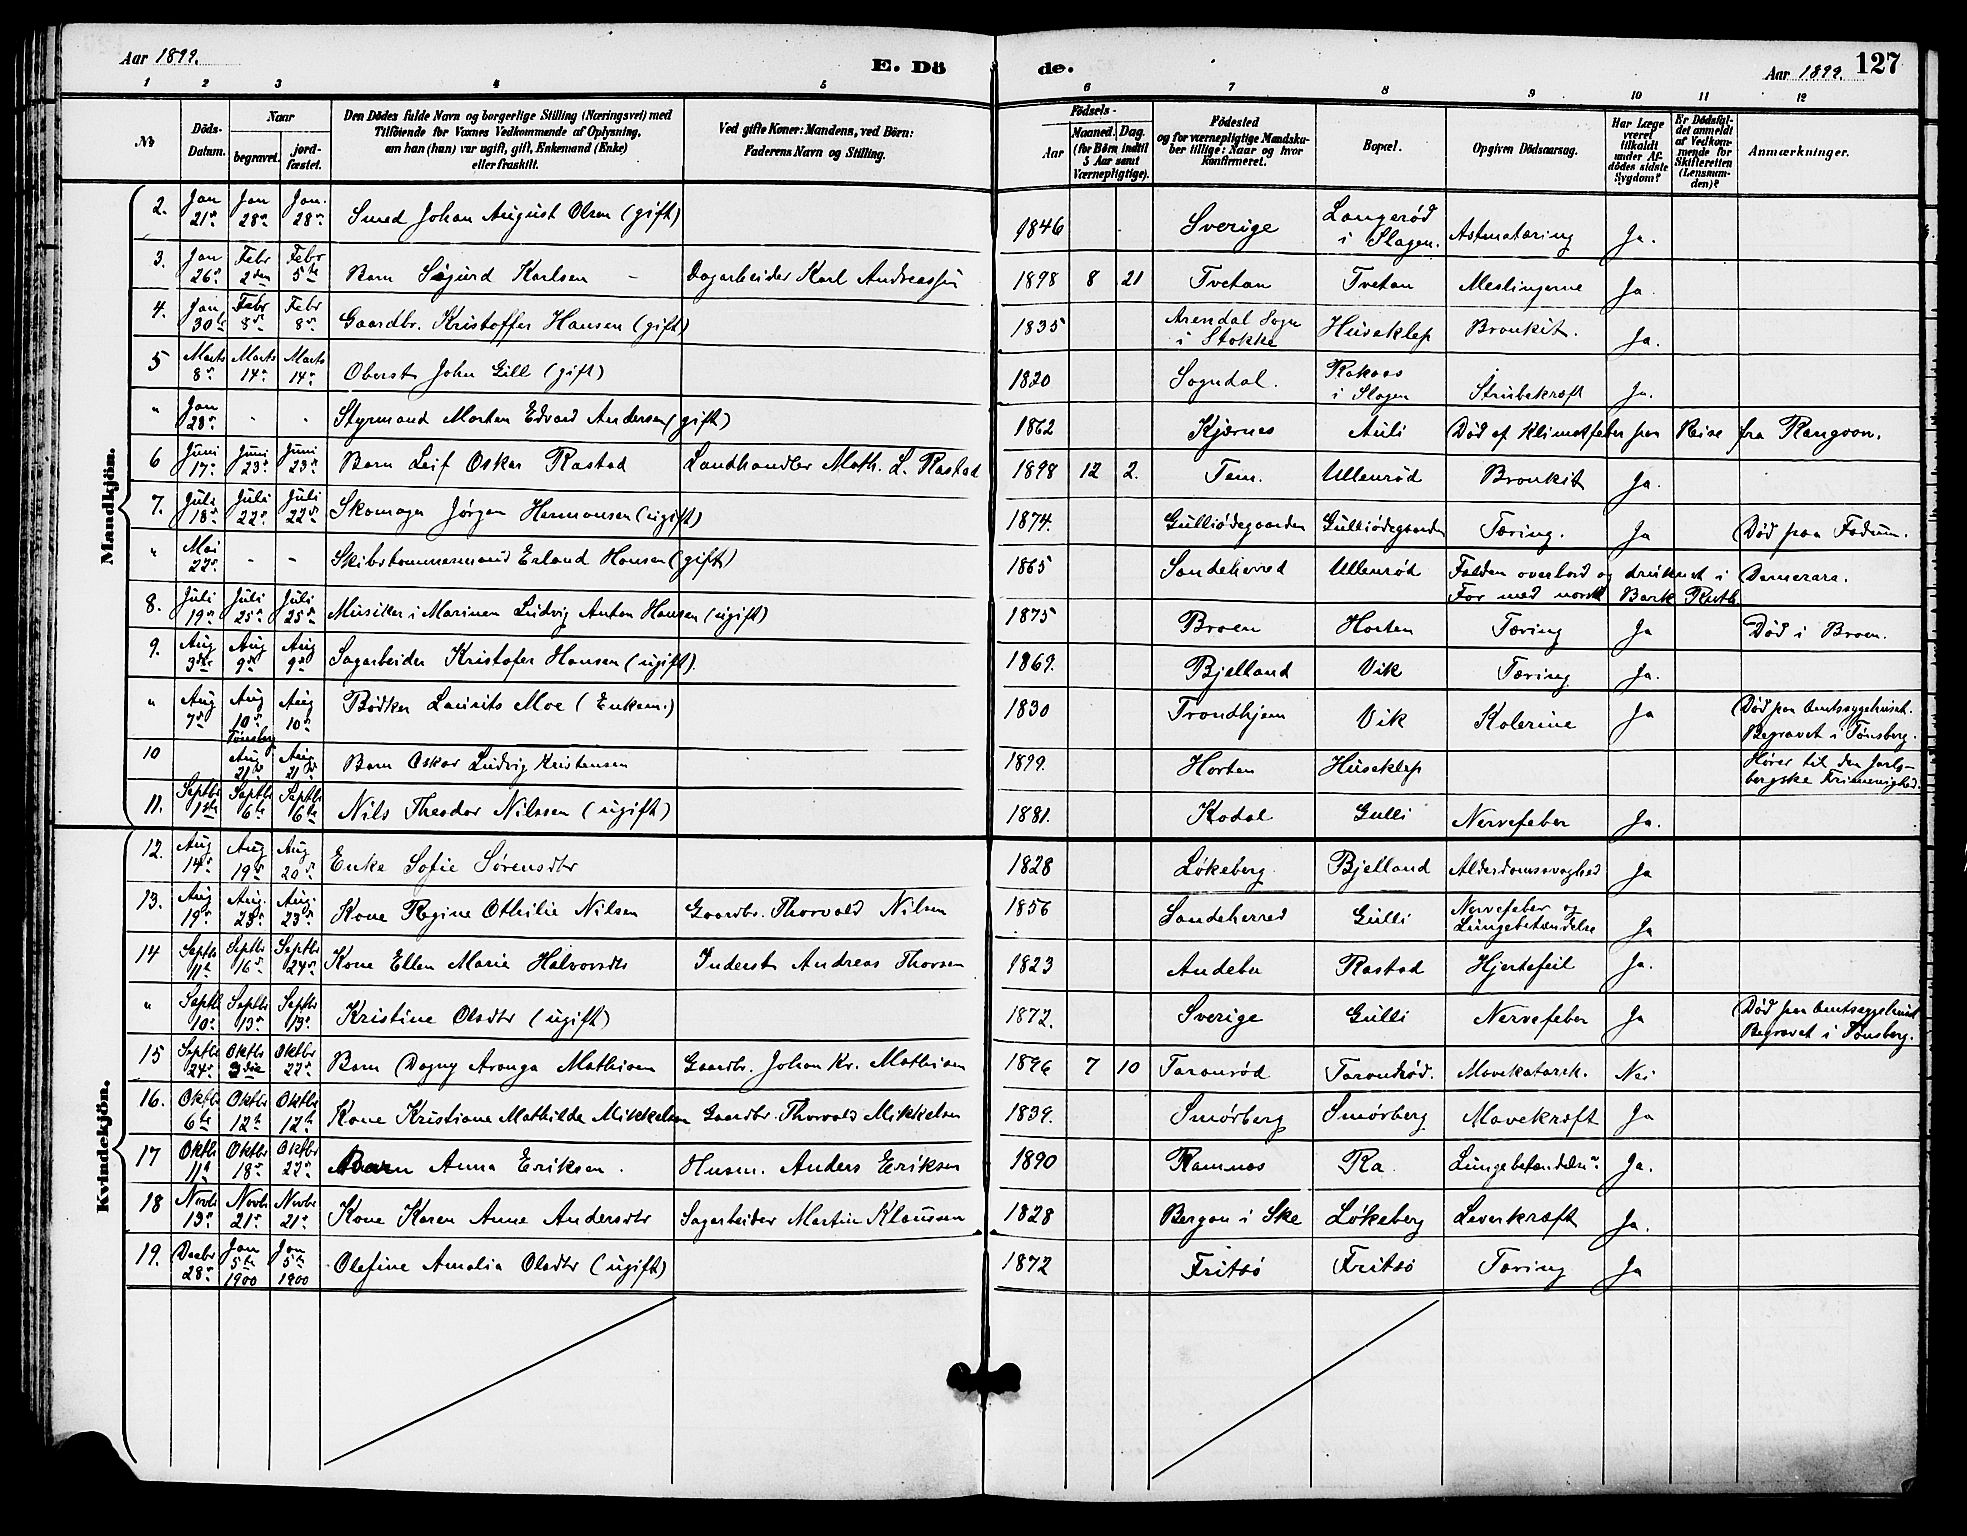 Aar 1899.
E. Dö de.
Aar 1899. 127
1 2 3 4 5 6 7 8 9 10 11 12
No
Döds-Datum.
Naar
begravet.
jordfæstet.
Den Dödes fulde Navn og borgerlige Stilling (Næringsvei) med
Tilföiende for Voxnes Vedkommende af Oplysning,
om han (hun) var ugift, gift, Enkemand (Enke)
eller fraskilt.
Ved gifte Koner: Mandens, ved Börn:
Faderens Navn og Stilling.
Födsels-
Aar
Maaned. Dag.
(for Börn indtil
5 Aar samt
Værnepligtige).
Födested
og for værnepligtige Mandska-
ber tillige: Naar og hvor
konfirmeret.
Bopæl.
Opgiven Dödsaarsag.
Har Læge
været
tilkaldt
under Af-
dödes sidste
Sygdom?
Er Dödsfal-
det anmeldt
af Vedkom-
mende for
Skifteretten
(Lensman-
den)?
Anmærkninger.
Mandkjön.
2. Jan 21de Jan 28de Jan. 28de Smed Johan August Olsen (gift) 1846 Sverige Langerød i Slagen. Astmatæring Ja.
3. Jan 26de Febr 2den Febr 5te Barn Sigurd Karlsen – Dagarbeider Karl Andreassen 1898 8 21 Tvetan Tvetan Meslingerne Ja.
4. Jan 30te Febr 8de Febr 8de Gaardbr. Kristoffer Hansen (gift) 1835 Arendal Sogn i Stokke Huseklep Bronkit. Ja.
5 Marts 8de Marts 14de Marts 14de Oberst John Gill (gift) 1820 Sogndal. i Slagen Strubekræft Ja.
" Jan 28de - - Styrmand Morten Edvard Andersen (gift) 1862 Kjærnes Auli Død af Klimatfeber paa Reise fra Rangoon.
6 Juni 17de Juni 23de Juni 23de Barn Leif Oskar Rastad Landhandler Math. L. Rastad 1898 12 2. Tem. Ullenrød Bronkit Ja.
7. Juli 18de Juli 22de Juli 22de Skomager Jørgen Hermansen (ugift) 1874. Gulliødegaarden Gulliødegaarden Tæring. Ja Død paa Fadum.
" Mai 27de - - Skibstømmermand Erland Hansen (gift) 1865 Sandeherred Ullenrød Falden overbord og druknet i Demerara.
For med norsk Bark Ruth
8. Juli 19de Juli 25de Juli 25de Musiker i Marinen Ludvig Anton Hansen (ugift) 1875 Broen Horten Tæring Ja Død i Broen.
9. Aug 3die Aug 9de Aug 9de Sagarbeider Kristofer Hansen (ugift). 1869. Bjelland Vik Tæring Ja.
" Aug 7de Aug 10de Tønsberg Aug 10de Bødker Laurits Moe (Enkem.) 1830 Trondhjem Vik Kolerine Ja Død paa Amtssygehuset. Begravet i Tønsberg.
10 Aug 21de Aug. 21de Barn Oskar Ludvig Kristensen 1899. Horten Huseklep Hører til den Jarls-
bergske Frimenighed.
11. Septbr 1ste Septbr 6te Septbr 6te Nils Theodor Nilssen (ugift) 1881. Kodal Gulli Nervefeber Ja.
Kvindekjön.
12. Aug 14de Aug 19de Aug 20de Enke Sofie Sørensdtr 1828 Løkeberg. Bjelland Alderdomssvaghed Ja
13. Aug 19de Aug. 23de Aug. 23de Kone Regine Othilie Nilsen Gaardbr. Thorvald Nilsen 1856 Sandeherred Gulli Nervefeber og Lungebetændelse Ja
14 Septbr 11te Septbr 16de Septbr 24de Kone Ellen Marie Halvorsdtr Inderst Andreas Thorsen 1823 Andebu Rastad Hjertefeil Ja.
" Septbr 10de Septbr 13de Septbr 13de Kristine Olsdtr (ugift) 1872. Sverige Gulli Nervefeber Ja Død paa Amtssygehuset Begravet i Tønsberg.
15 Septbr 24de Oktbr 3die Oktbr 22de Barn Dagny Aronga Mathisen Gaardbr. Johan Kr. Mathisen 1896 7 10 Taranrød Tarandrød. Mavekatarrh. Nei
16. Oktbr 6te Oktbr 12te Oktbr 12te Kone Kristiane Mathilde Mikkelsen Gaardbr. Thorvald Mikkelsen 1839. Smørberg Smørberg Mavekræft Ja
17 Oktbr 11te Oktbr 18de Oktbr 22de Barn Anna Eriksen. Husm. Anders Eriksen 1890 Ramnes Ra. Lungebetændelse. Ja.
18 Novbr 13de Novbr 21de Novbr 21de Kone Karen Anne Andersdtr Sagarbeider Martin Klaussen 1828 Bergan i Ske Løkeberg Leverkræft Ja.
19. Decbr 28de Jan 5te 1900 Jan 5te 1900 Olefine Amalia Olsdtr (ugift) 1872 Fritsø Fritsø Tæring Ja